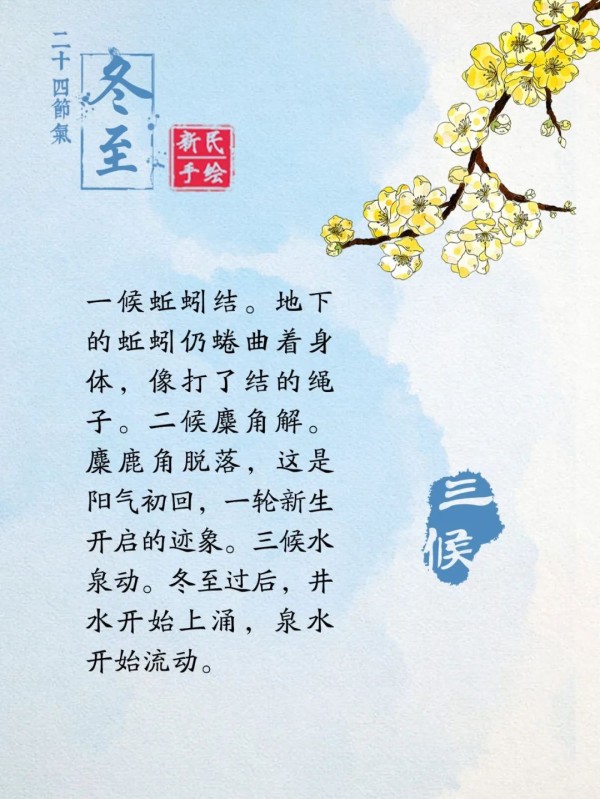 二十四節氣
冬至
新民
手绘
一候蚯蚓结。地下
的蚯蚓仍蜷曲着身
体，像打了结的绳
子。二候麋角解。
麋鹿角脱落，这是
阳气初回，一轮新生
开启的迹象。三候水
泉动。冬至过后，井
水开始上涌，泉水
开始流动。
三候